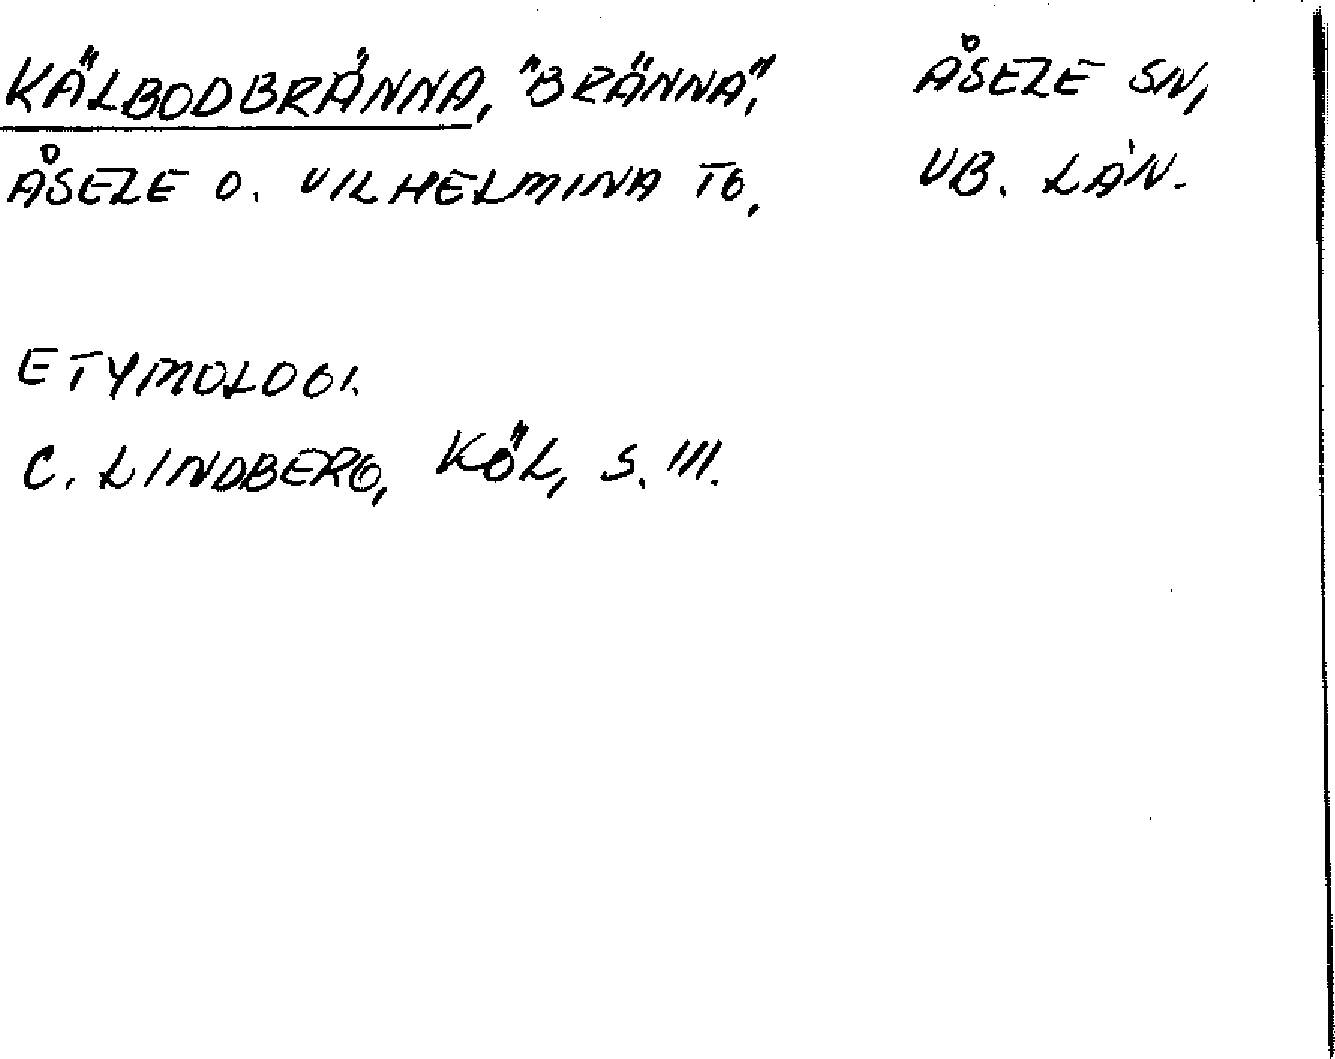 KÄLBODBRÄNNA, "BRÄNNA", ÅSELE SN,
ÅSELE O. VILHELMINA TG, VB. LÄN.
ETYMOLOGI.
C. LINDBERG, KÖL, S. 111.